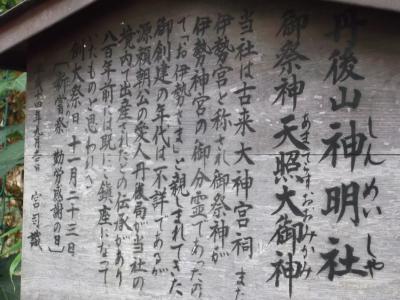 丹後山神明社
しんめいしゃ
御祭神 天照大御神
あまてらすおおみかみ
当社は古来大神宮祠また
伊勢宮と称され御祭神が
伊勢神宮の御分霊であったの
で「お伊勢さま」と親しまれてきた
御創建の年代は不詳であるが
源頼朝公の愛人丹後局が当社の
境内で出産されたとの伝承があり
八百年前には既に鎮座になって
いたものと思われる
例大祭日 十一月二十三日
「新嘗祭 勤労感謝の日」
宮司識